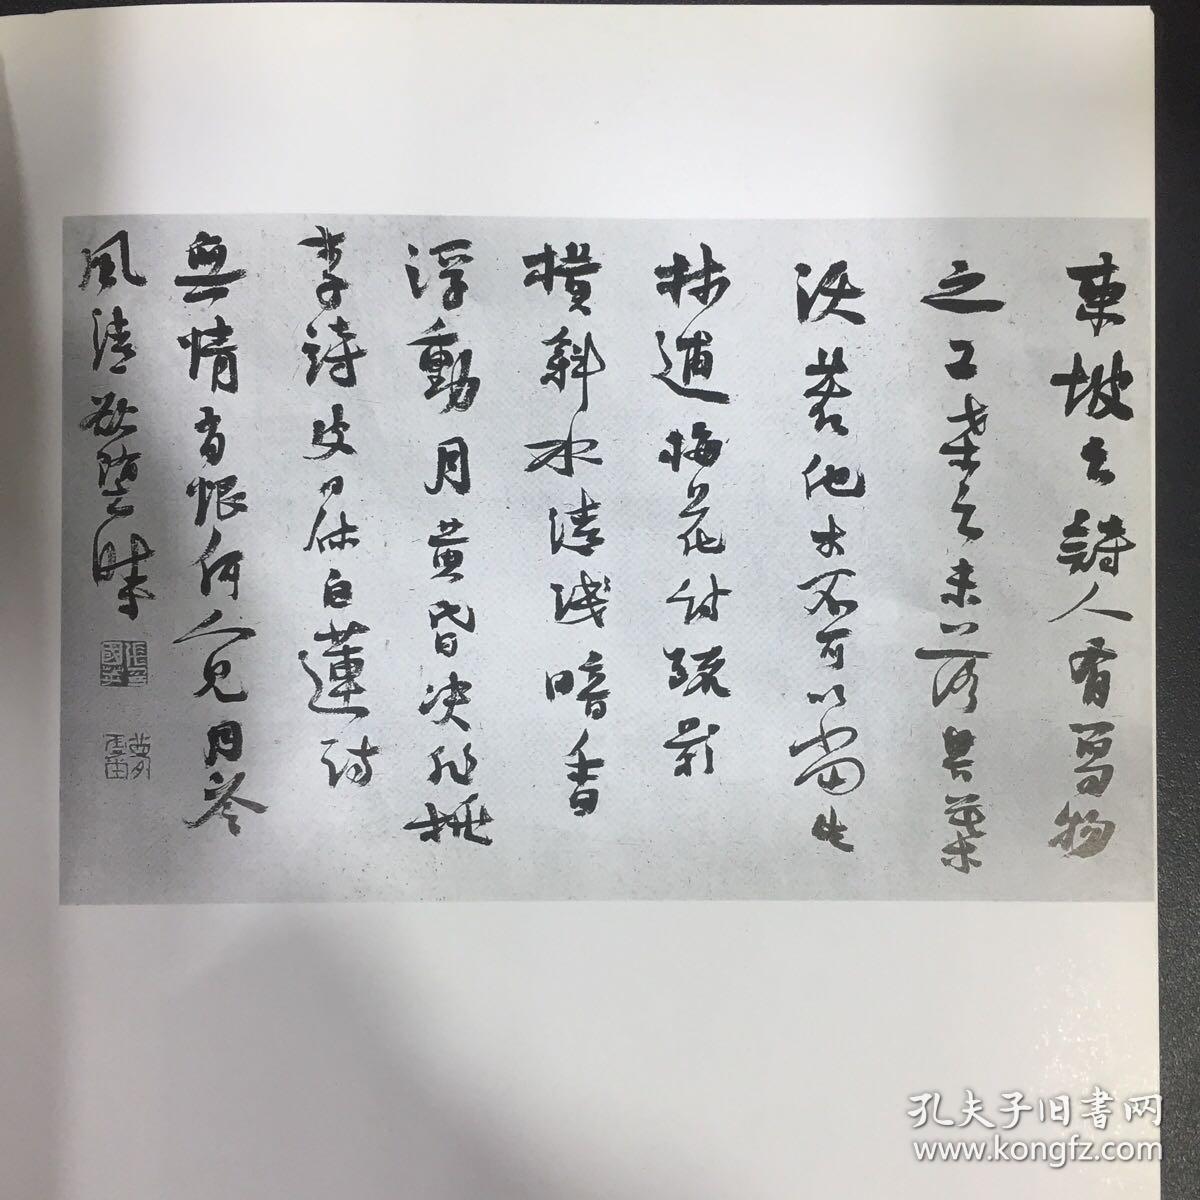 東坡云詩人有寫物
之工桑之未落其葉
沃若他木不可以當此
林逋梅花詩疏影
橫斜水清淺暗香
浮動月黃昏決非桃
李詩皮日休白蓮詩
無情有恨何人見月冷
風清欲墮時
孔夫子旧書网
www.kongfz.com